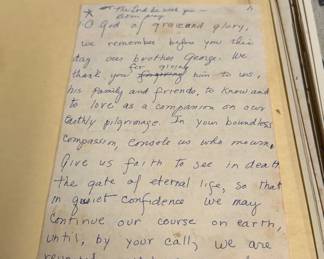 * The Lord be with you —
Let us pray
O God of grace and glory,
we remember before you this
day our brother George. We
thank you for giving him to us,
his family and friends, to know and
to love as a companion on our
earthly pilgrimage. In your boundless
compassion, console us who mourn.
Give us faith to see in death
the gate of eternal life, so that
in quiet confidence we may
continue our course on earth,
until, by your call, we are